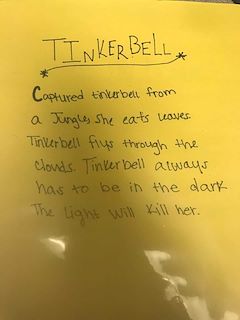 TINKERBELL
Captured tinkerbell from
a Jungle, she eats leaves.
Tinkerbell flys through the
clouds. Tinkerbell always
has to be in the dark
The Light will kill her.